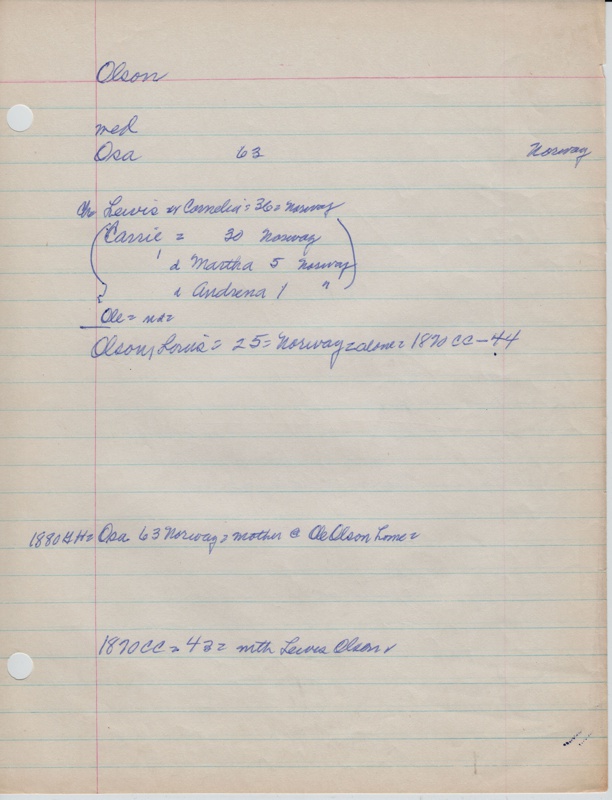 Olson
med
Osa 63 Norway
Ch. Lewis or Cornelia = 36 = Norway
(Carrie = 30 Norway
d Martha 5 Norway
d Andrena 1 "
Ole =
Olson, Louis = 25 = Norway = alone = 1870 CC - 44
1880 GH = Osa 63 Norway = mother @ Ole Olson home =
1870 CC = 42 = mth Lewis Olson